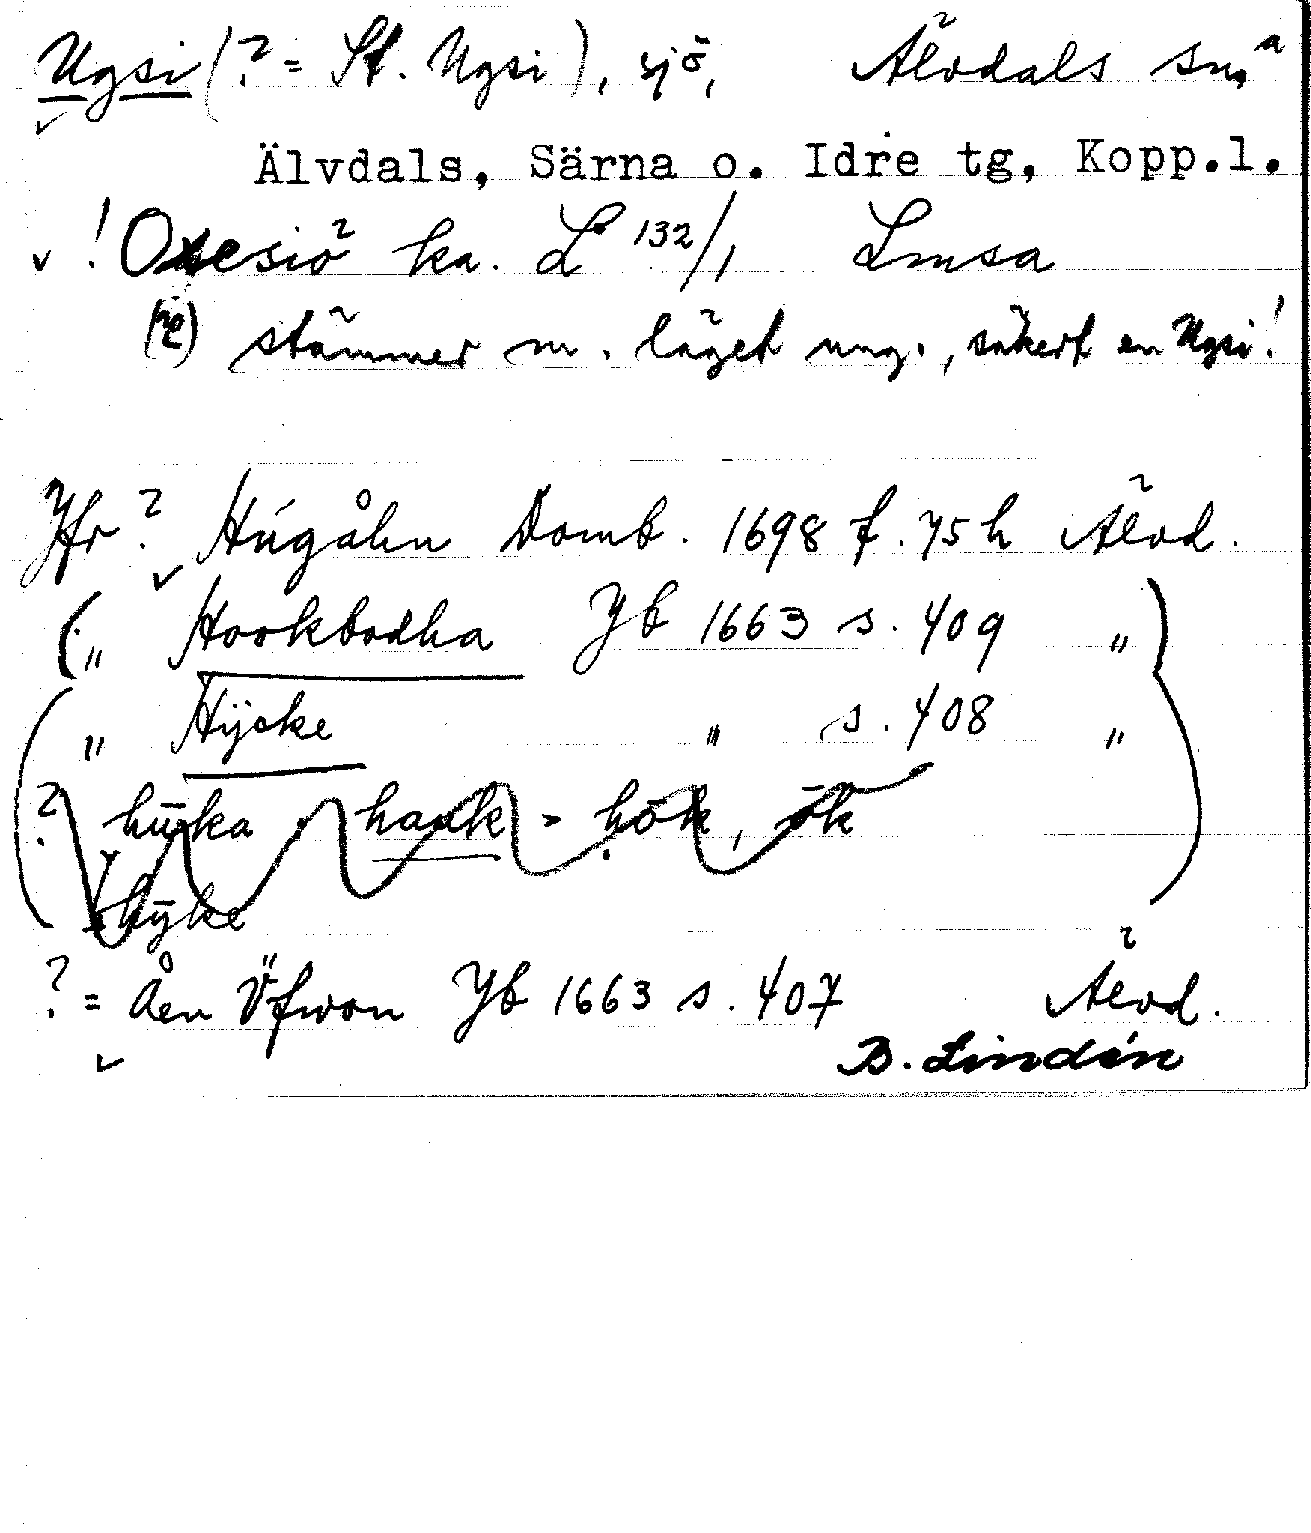 Ugsi (? = St. Ugsi), sjö, Älvdals sn, a
Älvdals, Särna o. Idre tg, Kopp.l.
! Oxesiö ka. L 132/1 Lmsa
(e) stämmer m. läget ung., säkert en Ugsi!
Jfr ? Hugåhn Domb. 1698 f. 75 h Älvd.
( „ Hookbodha Jb 1663 s. 409 „ )
( „ Hÿcke „ s. 408 „ )
? = Åen Öfwon Jb 1663 s. 407 Älvd.
B. Lindén